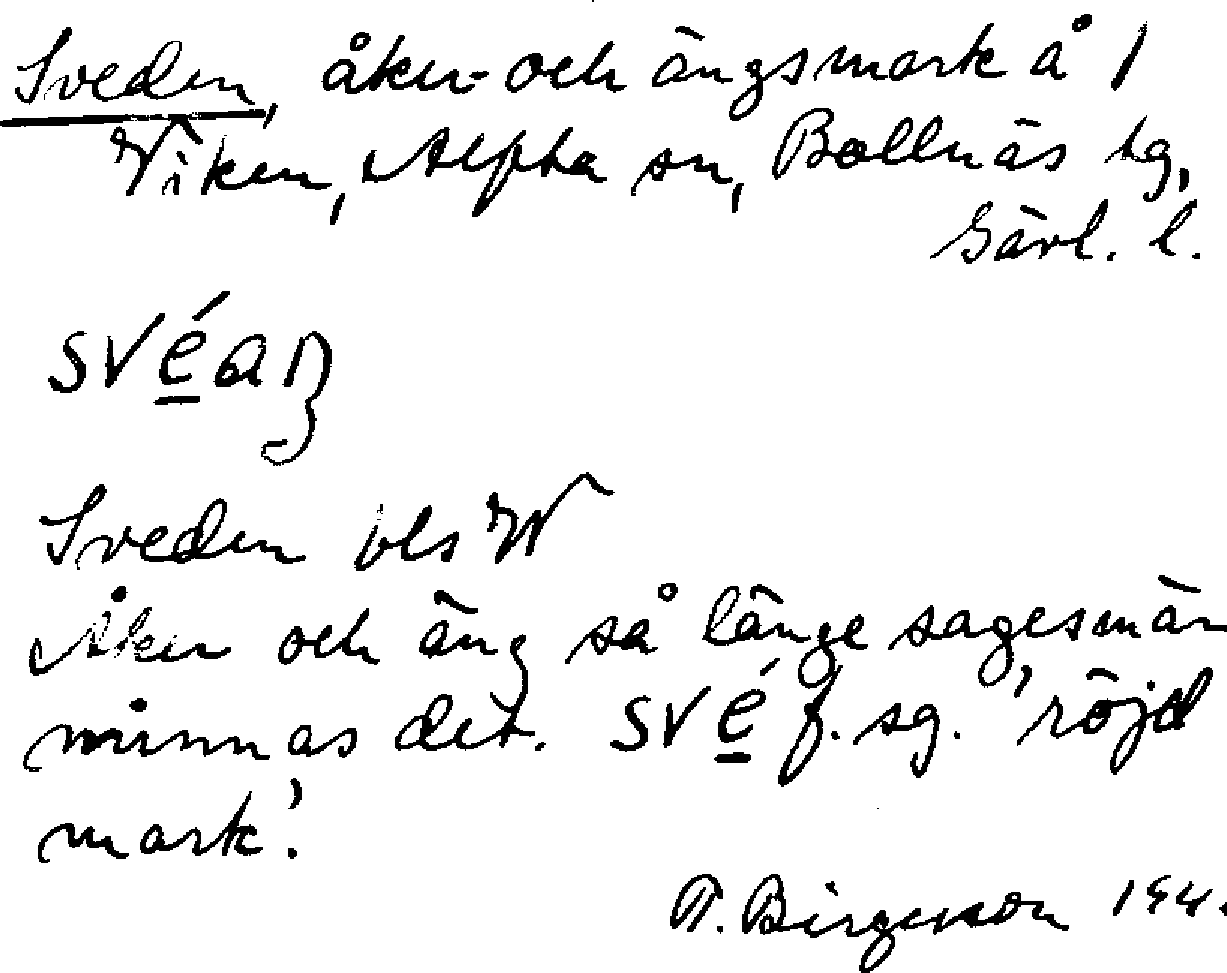 Sveden, åker- och ängsmark å 1
Viken, Alfta sn, Bollnäs tg,
Gävl. l.
svéaɳ
Sveden bls W
Åker och äng så länge sagesmän
minnas det. své f. sg. 'röjd
mark'.
Birgersson